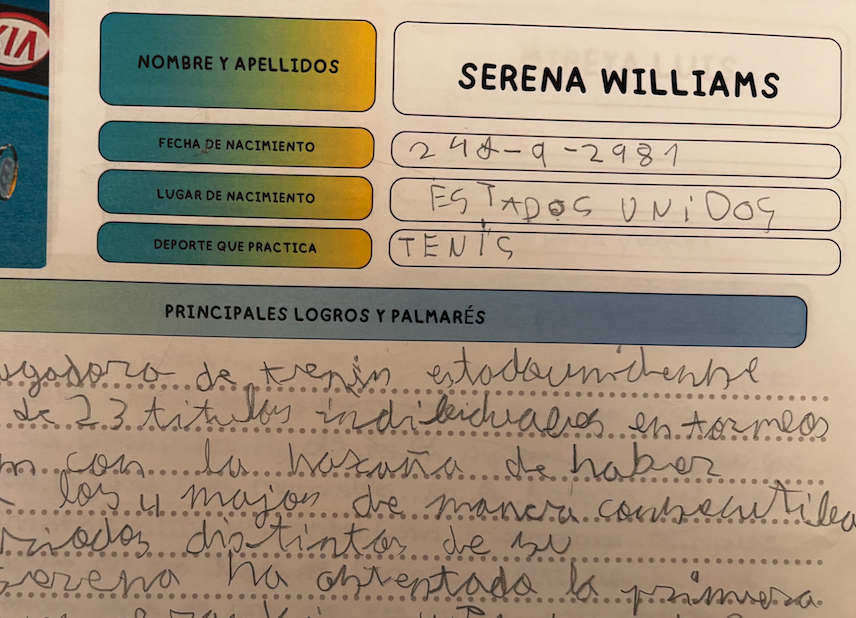 KIA
NOMBRE Y APELLIDOS
SERENA WILLIAMS
FECHA DE NACIMIENTO
24-9-2981
LUGAR DE NACIMIENTO
ESTADOS UNIDOS
DEPORTE QUE PRACTICA
TENIS
PRINCIPALES LOGROS Y PALMARÉS
de estadounidense
de 23 titulos en torneos
con la hazaña de haber
los 4 de manera
distintos de su
serena ha la primera